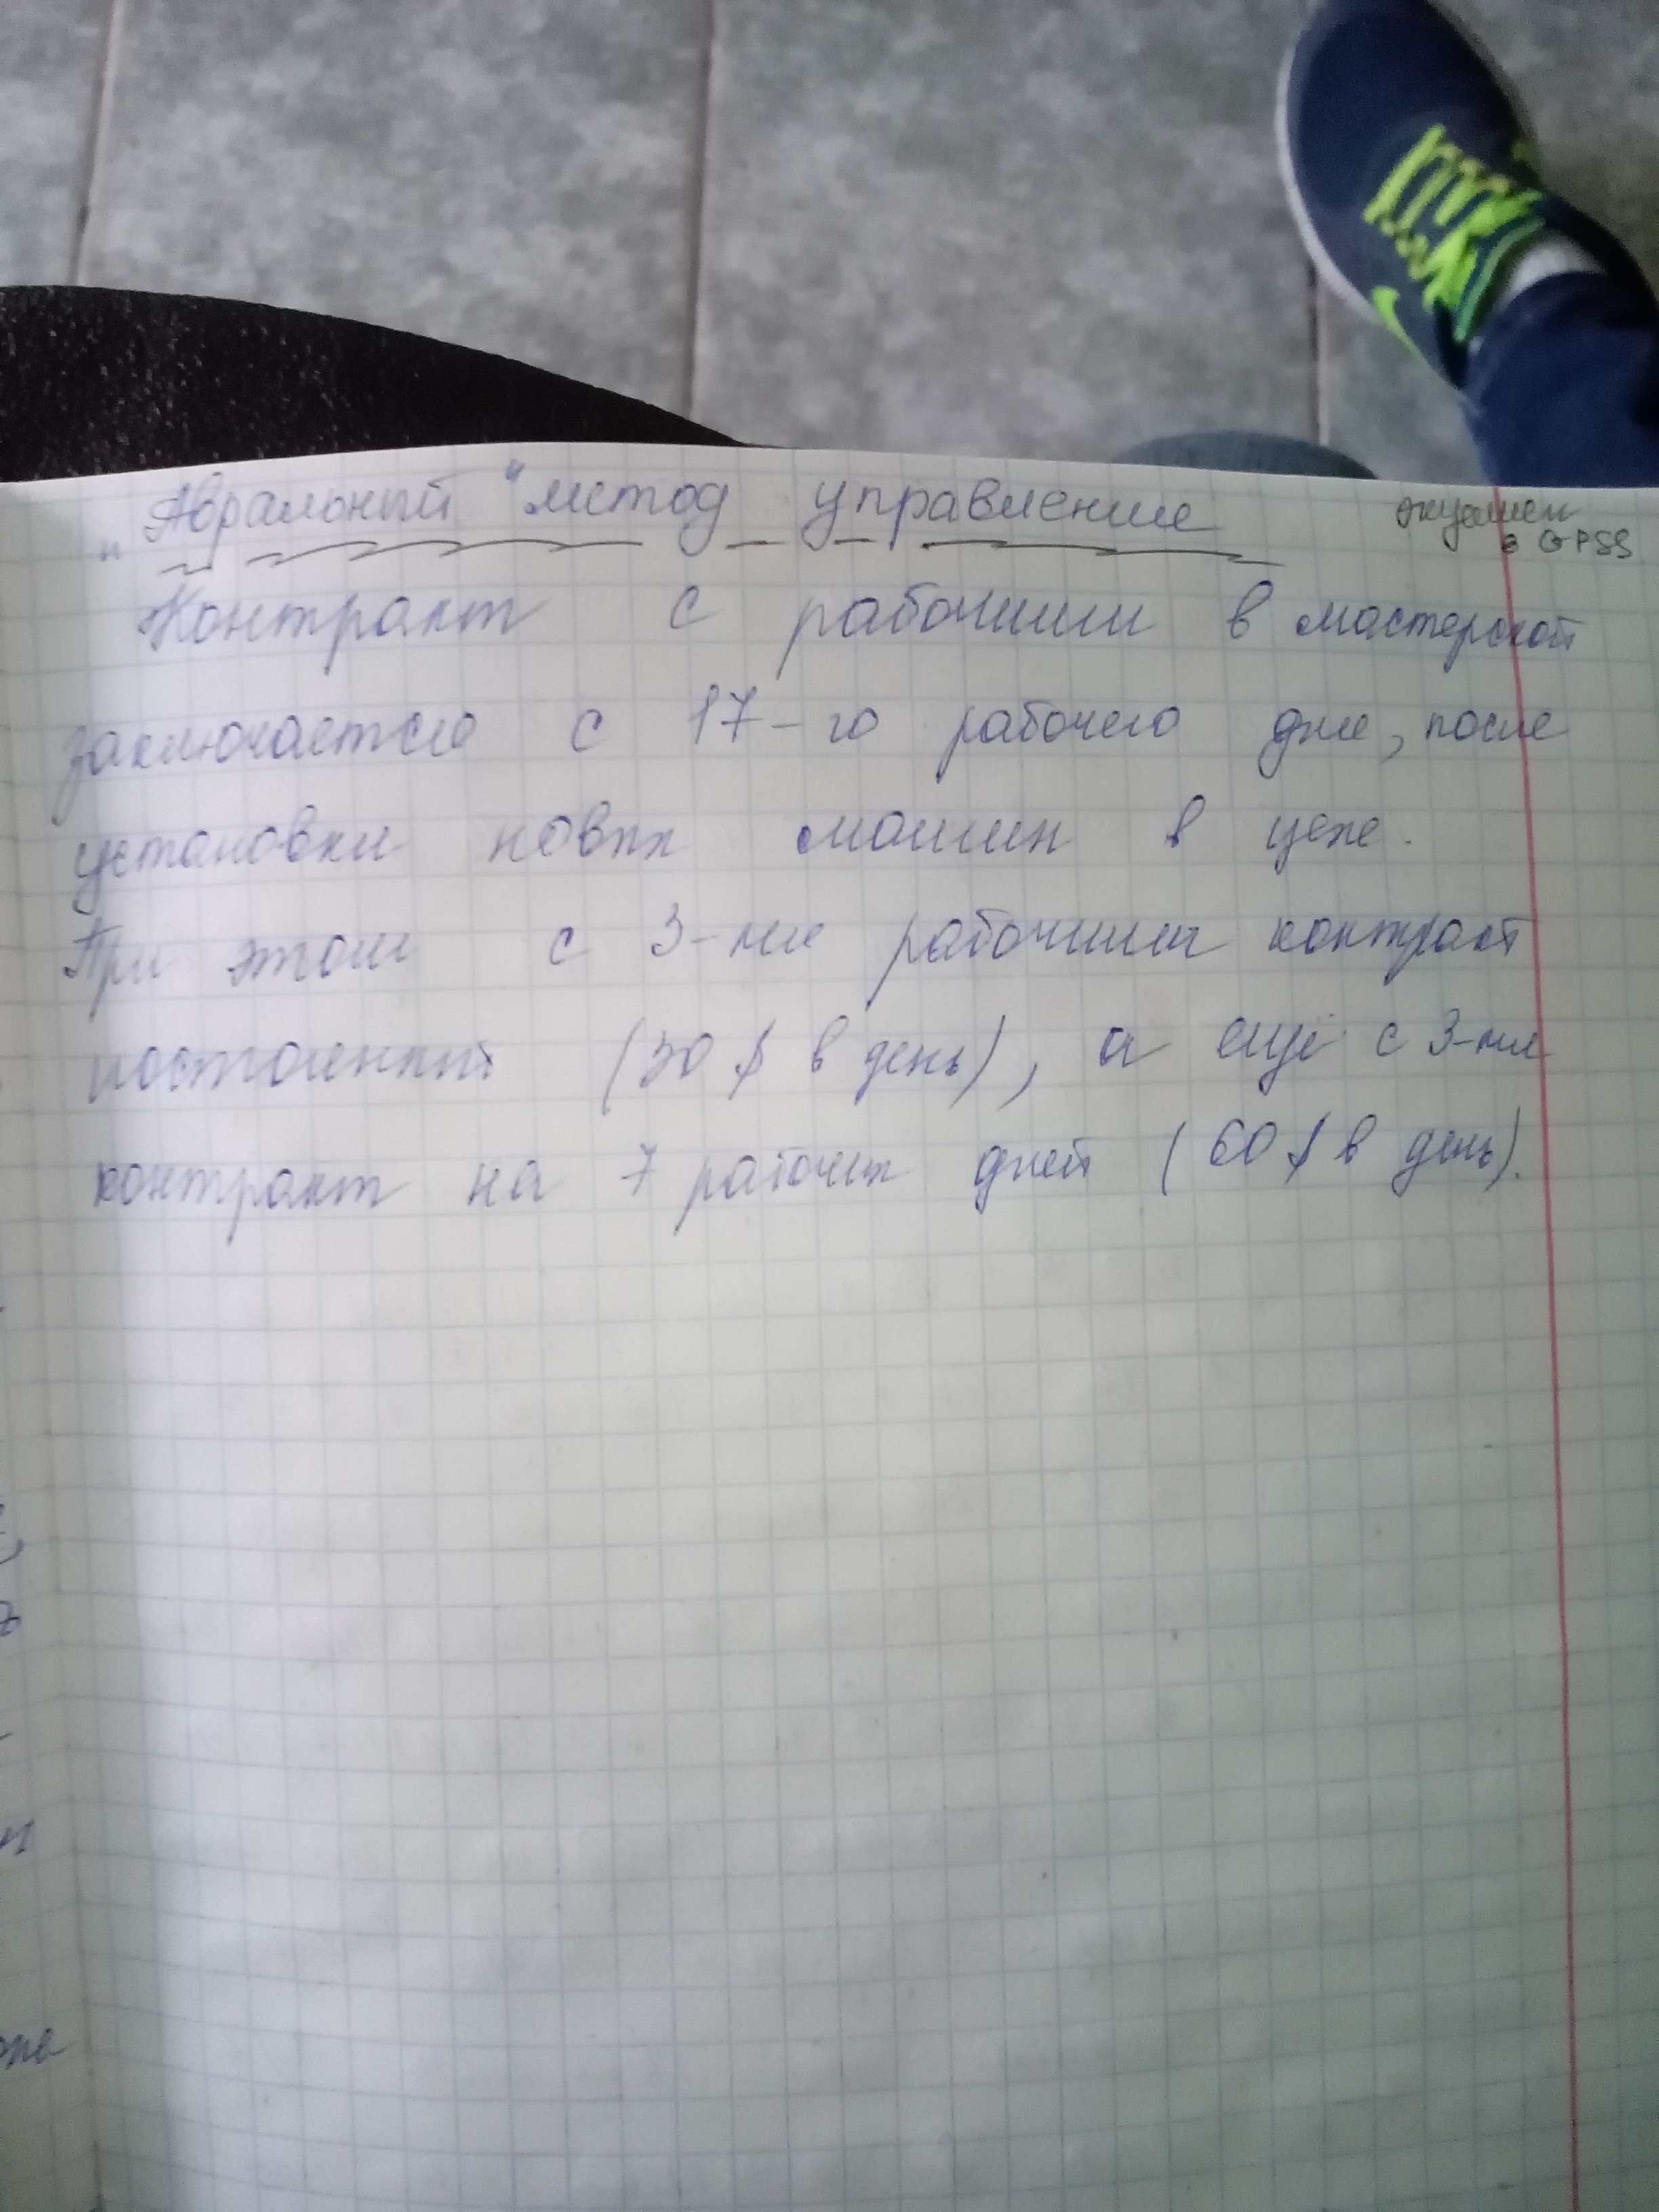 "Авральный" метод управления
в GPSS
Контракт с рабочими в мастерской
заключается с 17-го рабочего дня, после
установки новых машин в цехе.
При этом с 3-мя рабочими контракт
постоянный (30 $ в день), а ещё с 3-мя
контракт на 7 рабочих дней (60 $ в день).